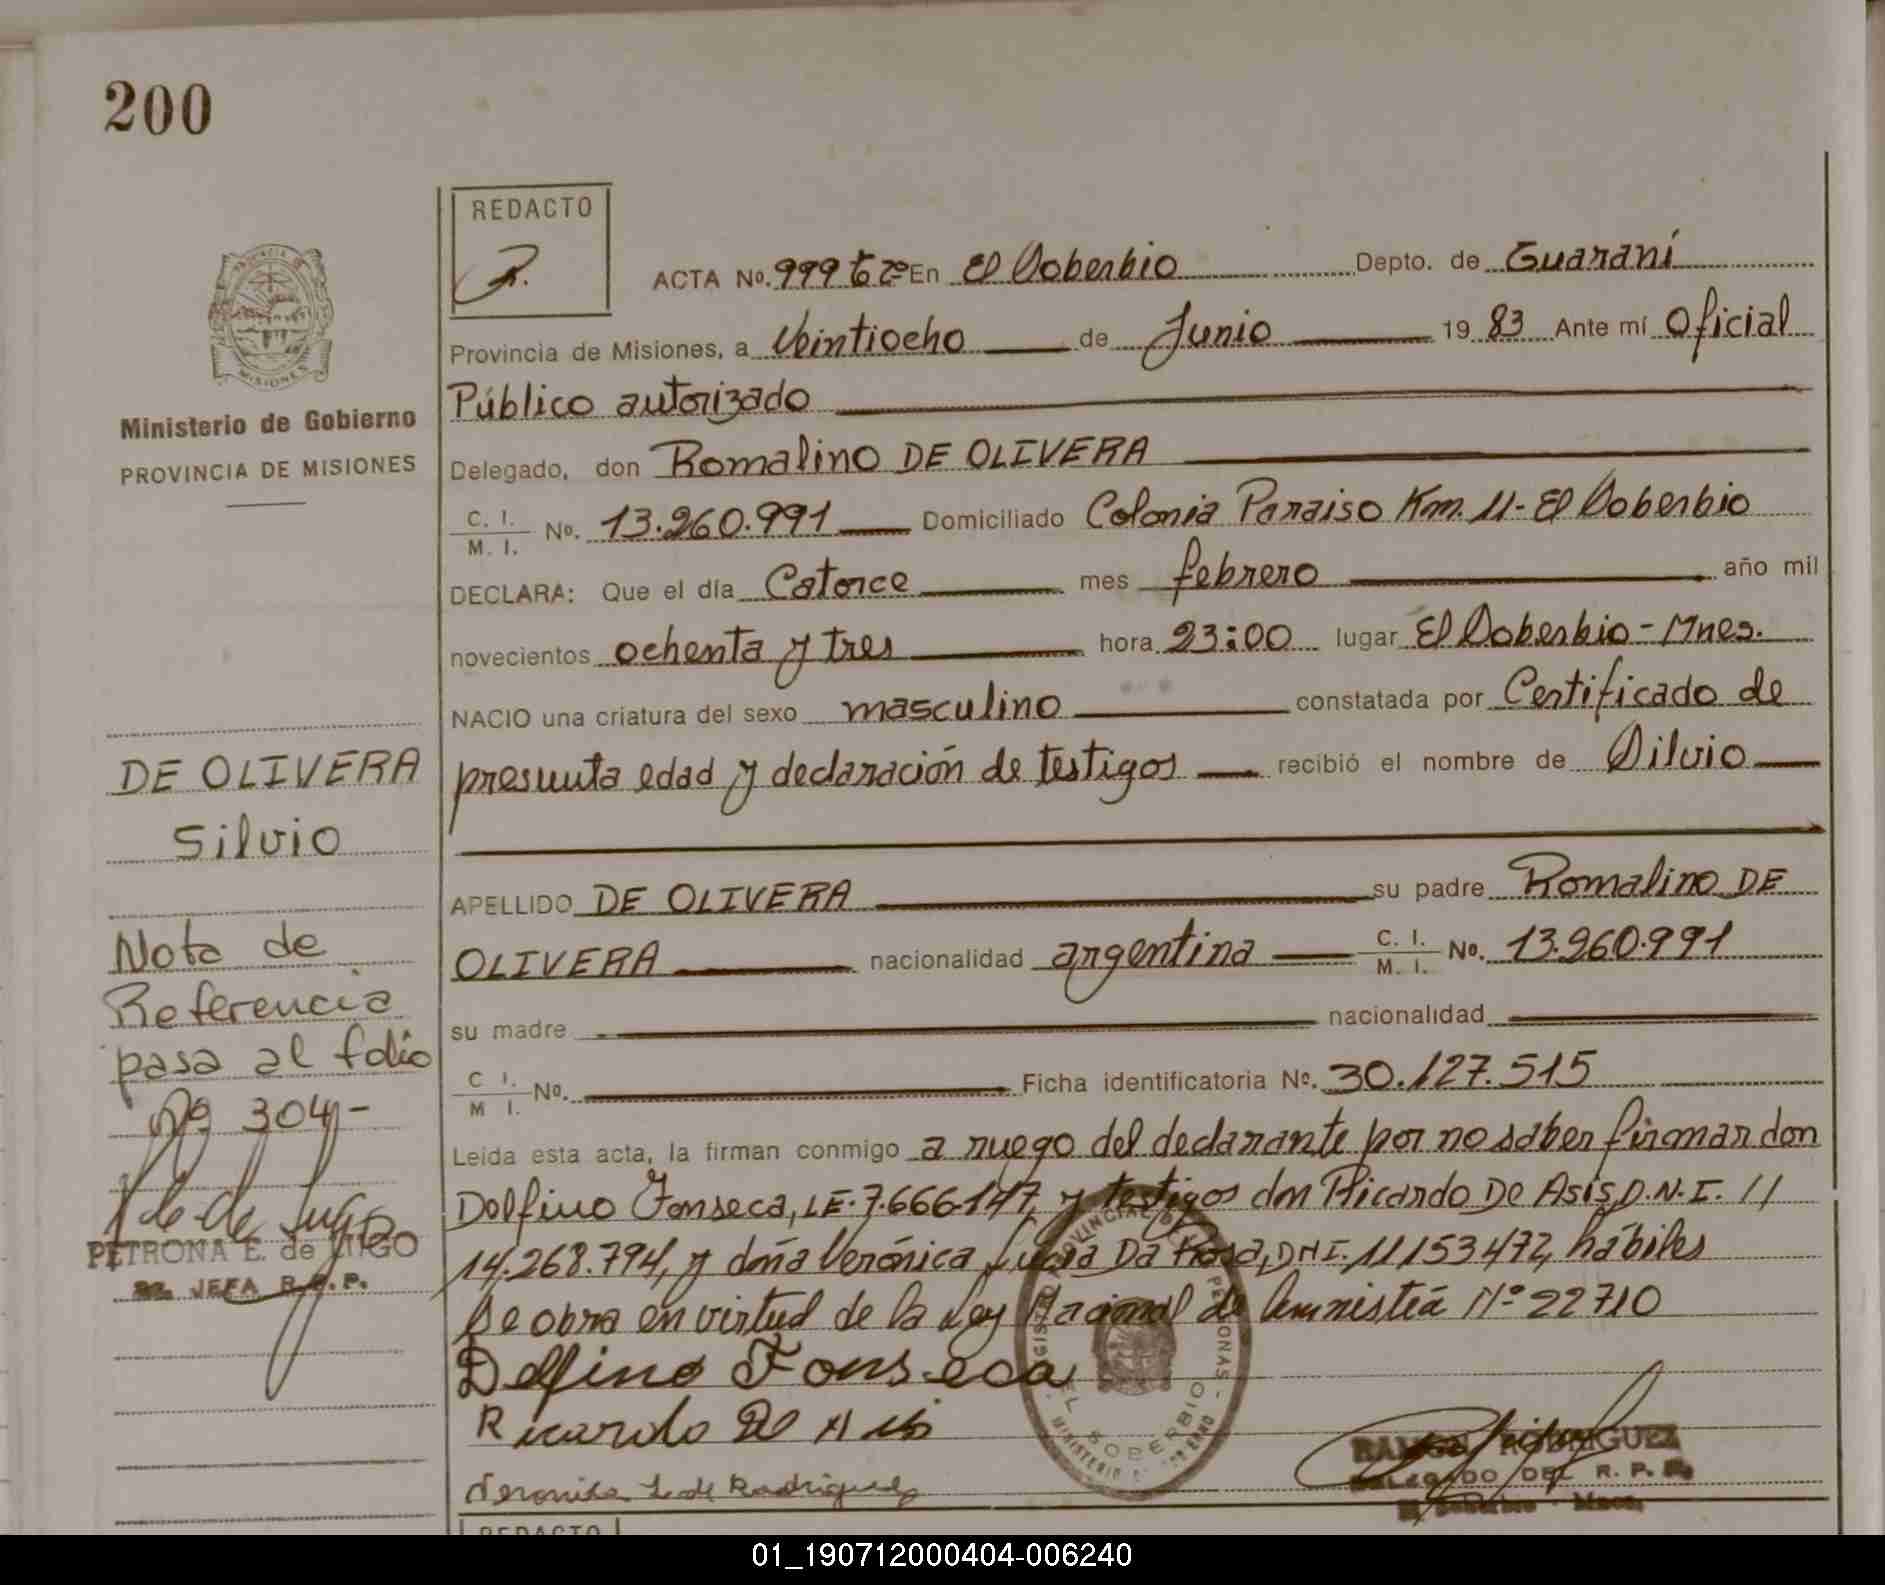 200
REDACTO
ACTA No. 999 En El Soberbio Depto. de Guaraní
Provincia de Misiones, a Veintiocho de Junio 19 83 Ante mí Oficial
Público autorizado
Delegado, don Romalino DE OLIVERA
C. I. M. I. No. 13.260.991 Domiciliado Colonia Paraiso Km. 11 - El Soberbio
DECLARA: Que el día Catorce mes febrero año mil
novecientos ochenta y tres hora 23:00 lugar El Soberbio - Mnes.
NACIO una criatura del sexo masculino constatada por Certificado de
presunta edad y declaración de testigos recibió el nombre de Silvio
APELLIDO DE OLIVERA su padre Romalino DE
OLIVERA nacionalidad argentina C. I. M. I. No. 13.260.991
su madre nacionalidad
C I. M I. No. Ficha identificatoria No. 30.127.515
Leida esta acta, la firman conmigo a ruego del declarante por no saber firmar don
Delfino Fonseca, LE. 7.666.147, y testigos don Ricardo De Asis, D.N.I. //
14.268.794, y doña Verónica Lucia Da Rosa, DNI. 11153472, hábiles
Se obra en virtud de la Ley Nacional de Amnistía Nº 22710
Delfino Fonseca
Ricardo De Asis
Veronica L. de Rodriguez
REGISTRO PROVINCIAL DE LAS PERSONAS
EL SOBERBIO
MINISTERIO DE GOBIERNO
RAMON RODRIGUEZ
DELEGADO DEL R. P. P.
El Soberbio - Mnes.
PROVINCIA DE
MISIONES
Ministerio de Gobierno
PROVINCIA DE MISIONES
DE OLIVERA
Silvio
Nota de
Referencia
pasa al folio
Nº 304-
PETRONA E. de LUGO
JEFA R.P.P.
REDACTO
01_190712000404-006240